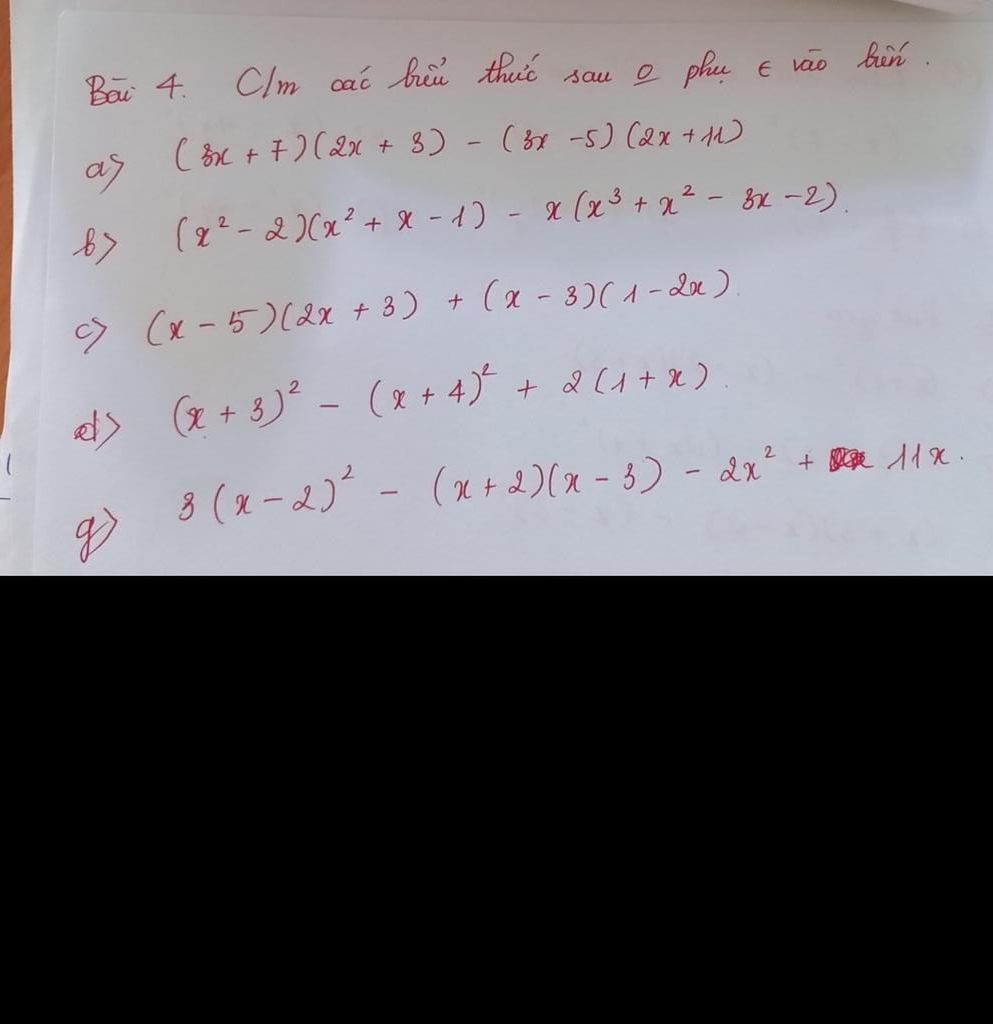 Bài 4. C/m các biểu thức sau o phụ ∈ vào biến.
a> (3x + 7)(2x + 3) - (3x - 5)(2x + 11)
b> (x² - 2)(x² + x - 1) - x(x³ + x² - 3x - 2).
c> (x - 5)(2x + 3) + (x - 3)(1 - 2x).
d> (x + 3)² - (x + 4)² + 2(1 + x).
g> 3(x - 2)² - (x + 2)(x - 3) - 2x² + 11x.